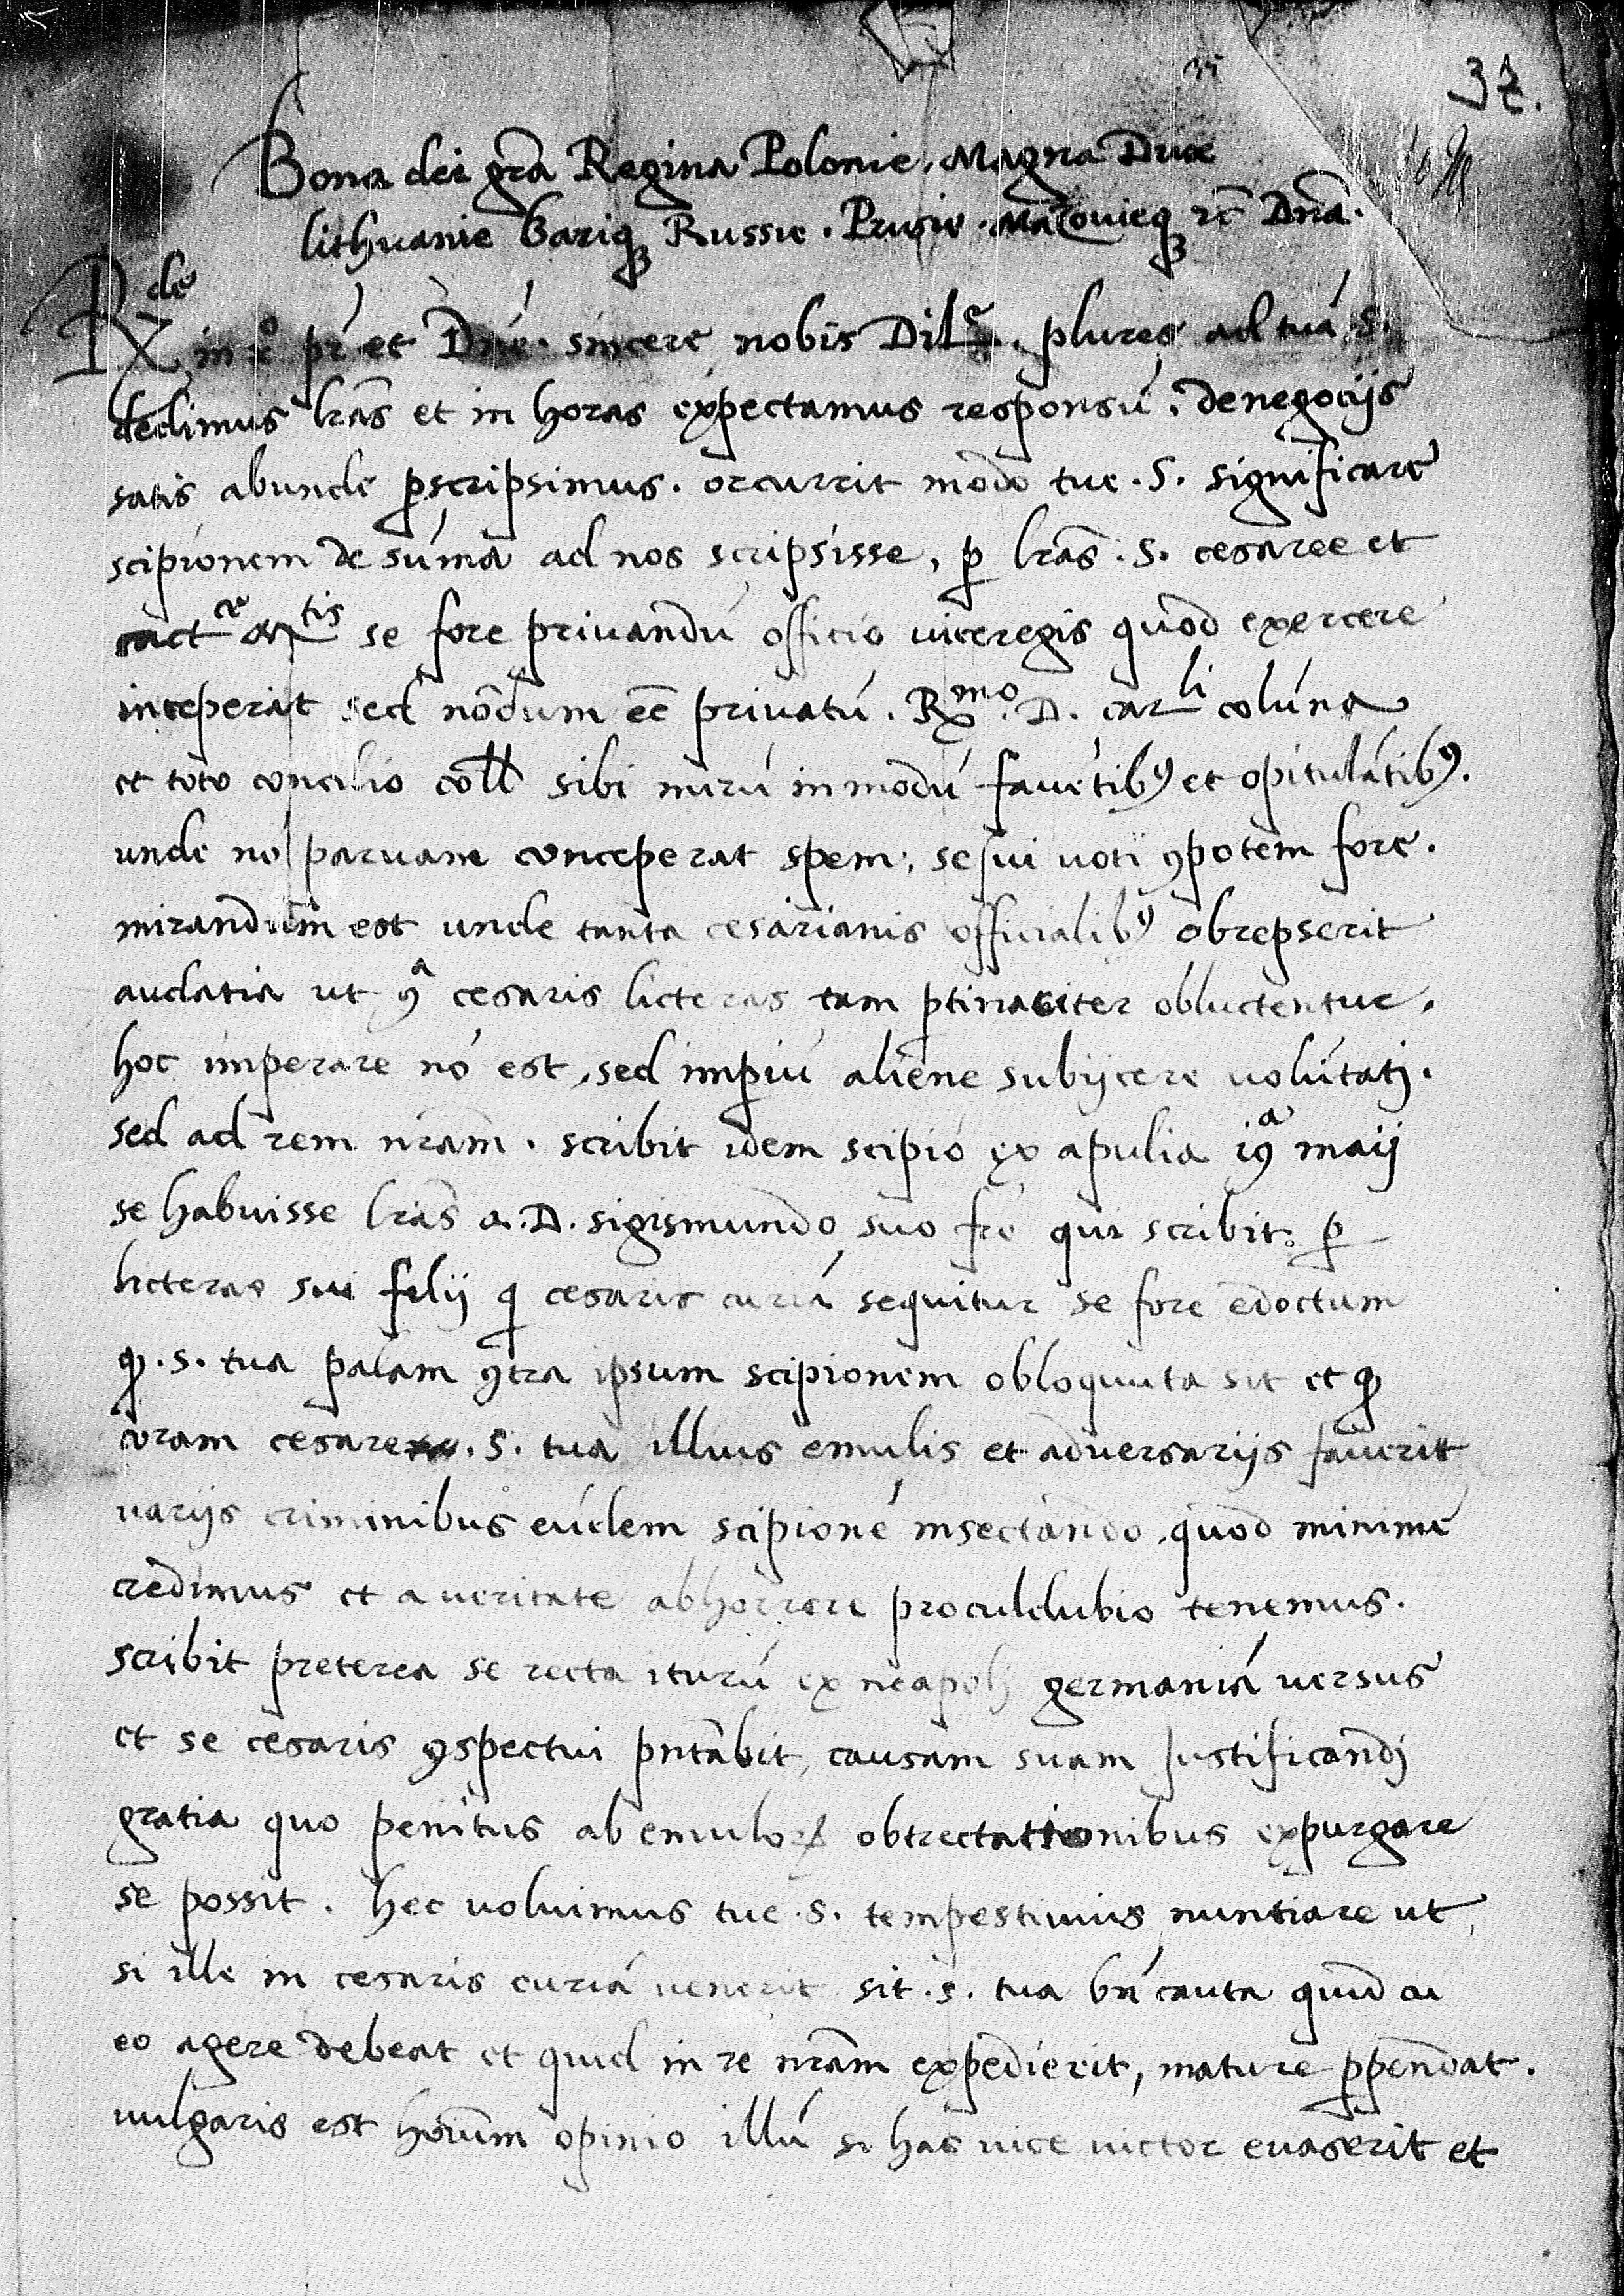 37.
Bona dei gra͞ Regina Polonie. Magna Dux
lithuanie Bariqꝫ Russie. Prusie. Mazouieqꝫ rc͞ Dn͞a.
Rde in xo pr̄ et Dn͞e. sincere nobis Dile. plures ad tuā S.
dedimus lr͞as et in horas expectamus responsū. de negocijs
satis abunde ꝑscripsimus. occurrit modo tue. S. significare
scipionem de sum̄a ad nos scripsisse, ꝑ lr͞as. S. cesaree et
cact ce Mtis se fore priuandū officio viceregis quod exercere
inceperat sed nondum ee͞ priuatū. Rmo. D. carli colūna
et toto concilio coll̄ sibi mirū in modū fauētibꝰ et opitulātibꝰ.
unde nō paruam conceperat spem, se sui uoti ꝯpotem fore.
mirandum est unde tanta cesarianis officialibꝰ obrepserit
audatia ut ꝯa cesaris licteras tam ꝑtinaciter obluctentur.
hoc imperare nō est, sed imꝑiū aliene subijcere uolūtatj.
sed ad rem nr͞am. scribit idem scipio ex apulia i9a maij
se habuisse lr͞as a. D. sigismundo suo fr͞e qui scribit ꝑ
licteras sui filij q cesaris curiā sequitur se fore edoctum
ꝙ. s. tua palam ꝯtra ipsum scipionem obloquuta sit et ꝙ
coram cesare. S. tua illius emulis et aduersarijs fauerit
uarijs criminibus eūdem scipionē insectando. quod minime
credimus et a ueritate abhorrere proculdubio tenemus.
scribit preterea se recta iturū ex neapolj germaniā uersus
et se cesaris ꝯspectui pn͞tabit, causam suam Justificandj
gratia quo penitus ab emuloꝝ obtrectationibus expurgare
se possit. hec uoluimus tue. S. tempestiuius nuntiare ut
si ille in cesaris curiā uenerit sit. s. tua bn̄ cauta quid cū
eo agere debeat et quid in re nr͞am expedierit, mature ꝑpendat.
uulgaris est hoīum opinio illū si hac uice uictor euaserit et